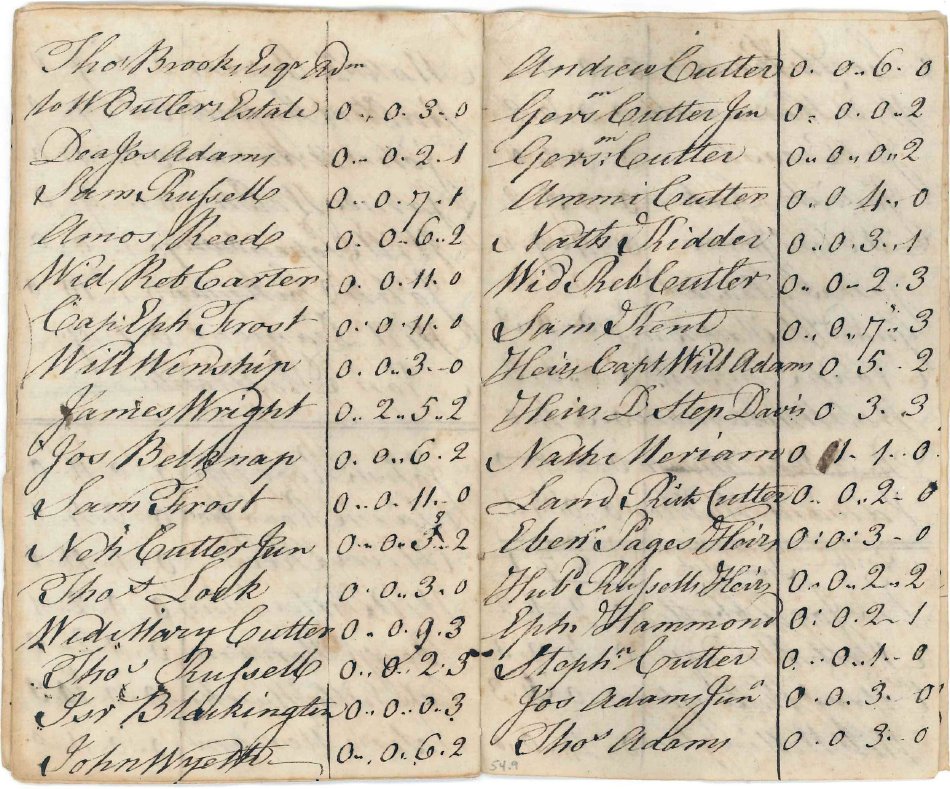 Thos Brooks Esqr Adm
to W Cutlers Estate 0 . 0 . 3 . 0
Dea Jos Adams 0 . 0 . 2 . 1
Sam Russell 0 . 0 . 7 . 1
Amos Reed 0 . 0 . 6 . 2
Wid Reb Carter 0 . 0 . 11 . 0
Cap Eph Frost 0 . 0 . 11 . 0
Will Winship 0 . 0 . 3 . 0
James Wright 0 . 2 . 5 . 2
Jos Belknap 0 . 0 . 6 . 2
Sam Frost 0 . 0 . 11 . 0
Neh Cutter Jun 0 . 0 . 2
Thos Lock 0 . 0 . 3 . 0
Wid Mary Cutter 0 . 0 . 9 . 3
Thos Russell 0 . 0 . 2 . 3
Isr Blackington 0 . 0 . 0 . 3
John Wyeth 0 . 0 . 6 . 2
Andrew Cutter 0 . 0 . 6 . 0
Gersm Cutter Jun 0 . 0 . 0 . 2
Gersm Cutter 0 . 0 . 0 . 2
Ammi Cutter 0 . 0 4 . 0
Nath Kidder 0 . 0 . 3 . 1
Wid Reb Cutler 0 . 0 . 2 . 3
Sam Kent 0 . 0 . 7 . 3
Heirs Capt Will Adams 0 . 5 . 2
Heirs D Step Davis 0 . 3 . 3
Nath Meriam 0 1 . 1 . 0
Land Rich Cutter 0 . 0 . 2 . 0
Ebenr Pages Heirs 0 : 0 : 3 . 0
Hubd Russells Heirs 0 . 0 . 2 . 2
Eph Hammond 0 : 0 . 2 . 1
Stephn Cutter 0 . 0 . 1 . 0
Jos Adams Junr 0 . 0 . 3 . 0
Thos Adams 0 . 0 3 . 0
54.9